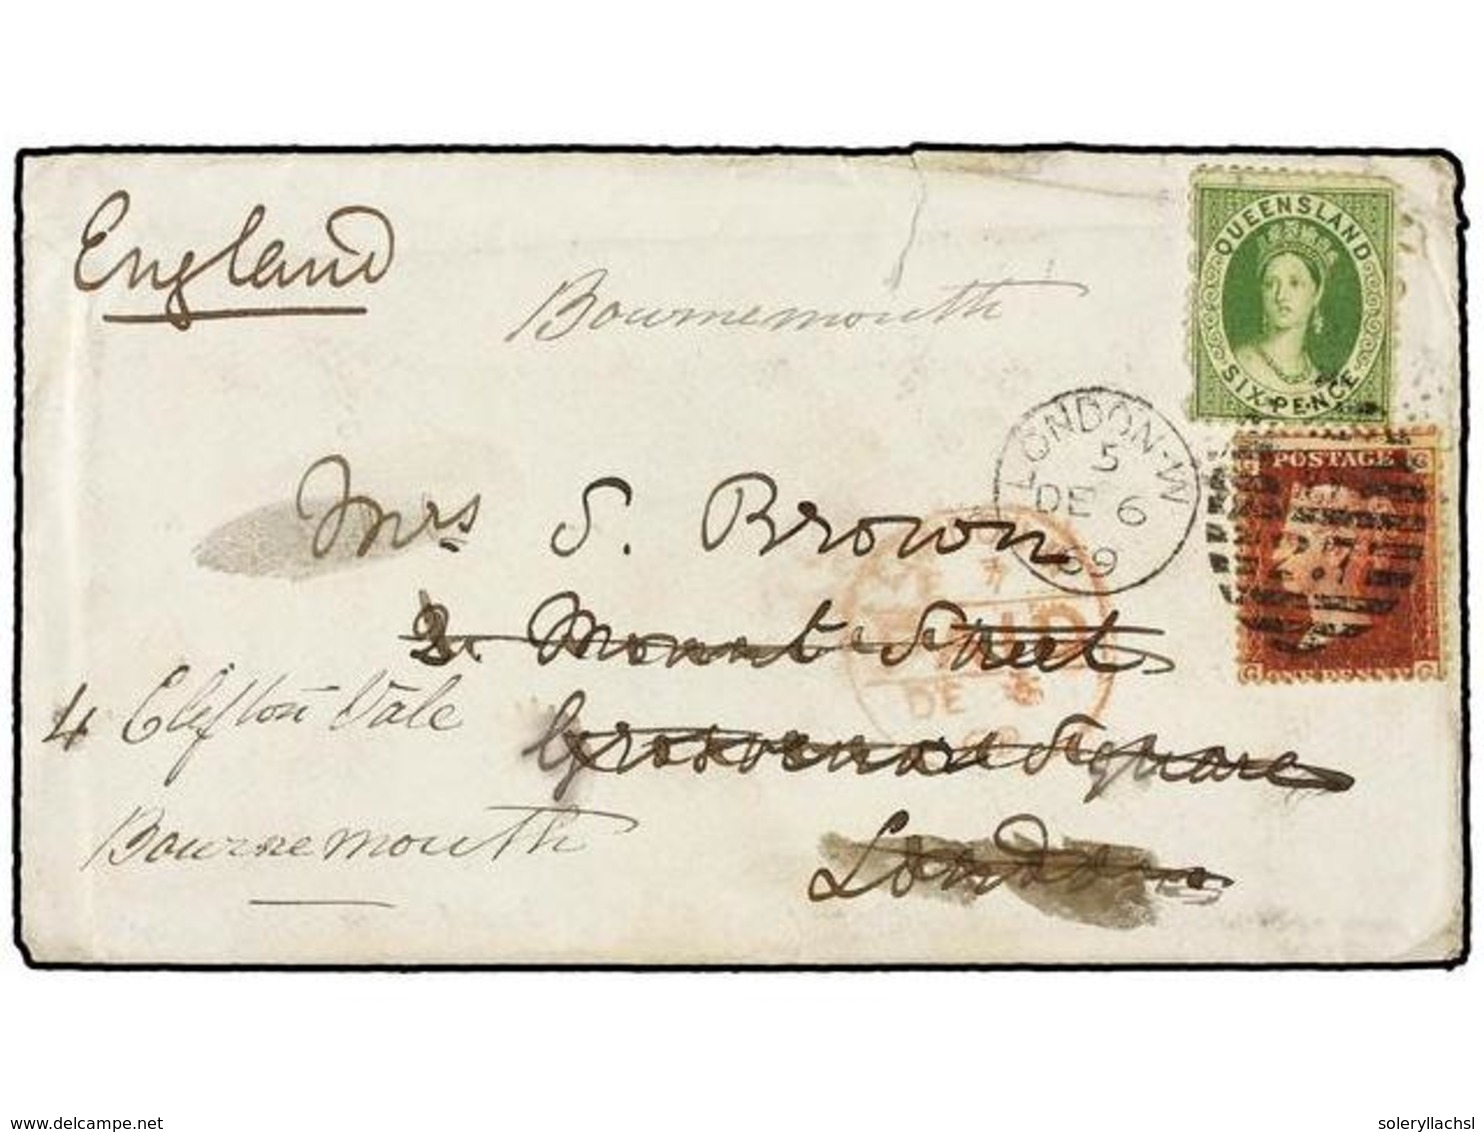 England
Bournemouth
QUEENSLAND
SIX PENCE
LONDON-W
5
DE 6
69
POSTAGE
G
27
G ONE PENNY G
Mrs S. Brown
2. Mount Street
Grosvenor Square
London
PAID
DE 6
4 Clifton Vale
Bournemouth
www.delcampe.net
soleryllachsl